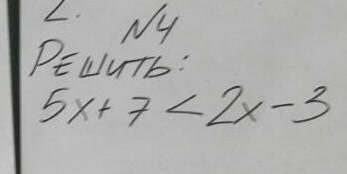 2.
№4
РЕШИТЬ:
5x+7<2x-3